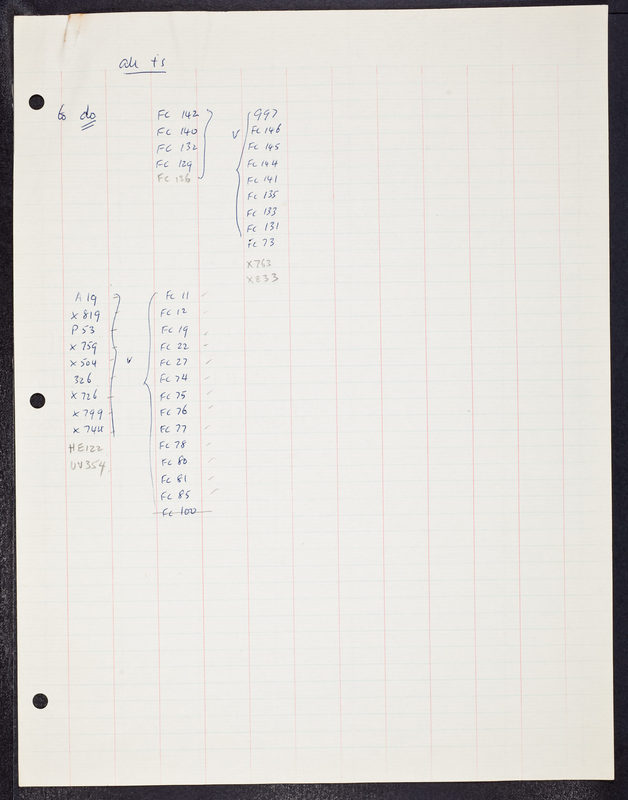 all ts
to do
Fc 142
Fc 140
Fc 132
Fc 129
Fc 136
v
997
Fc 146
Fc 145
Fc 144
Fc 141
Fc 135
Fc 133
Fc 131
Fc 73
X763
XE33
A 19
X 819
P 53
X 759
X 504
326
X 726
X 799
X 744
HE122
UV354
v
Fc 11
Fc 12
Fc 19
Fc 22
Fc 27
Fc 74
Fc 75
Fc 76
Fc 77
Fc 78
Fc 80
Fc 81
Fc 85
Fc 100